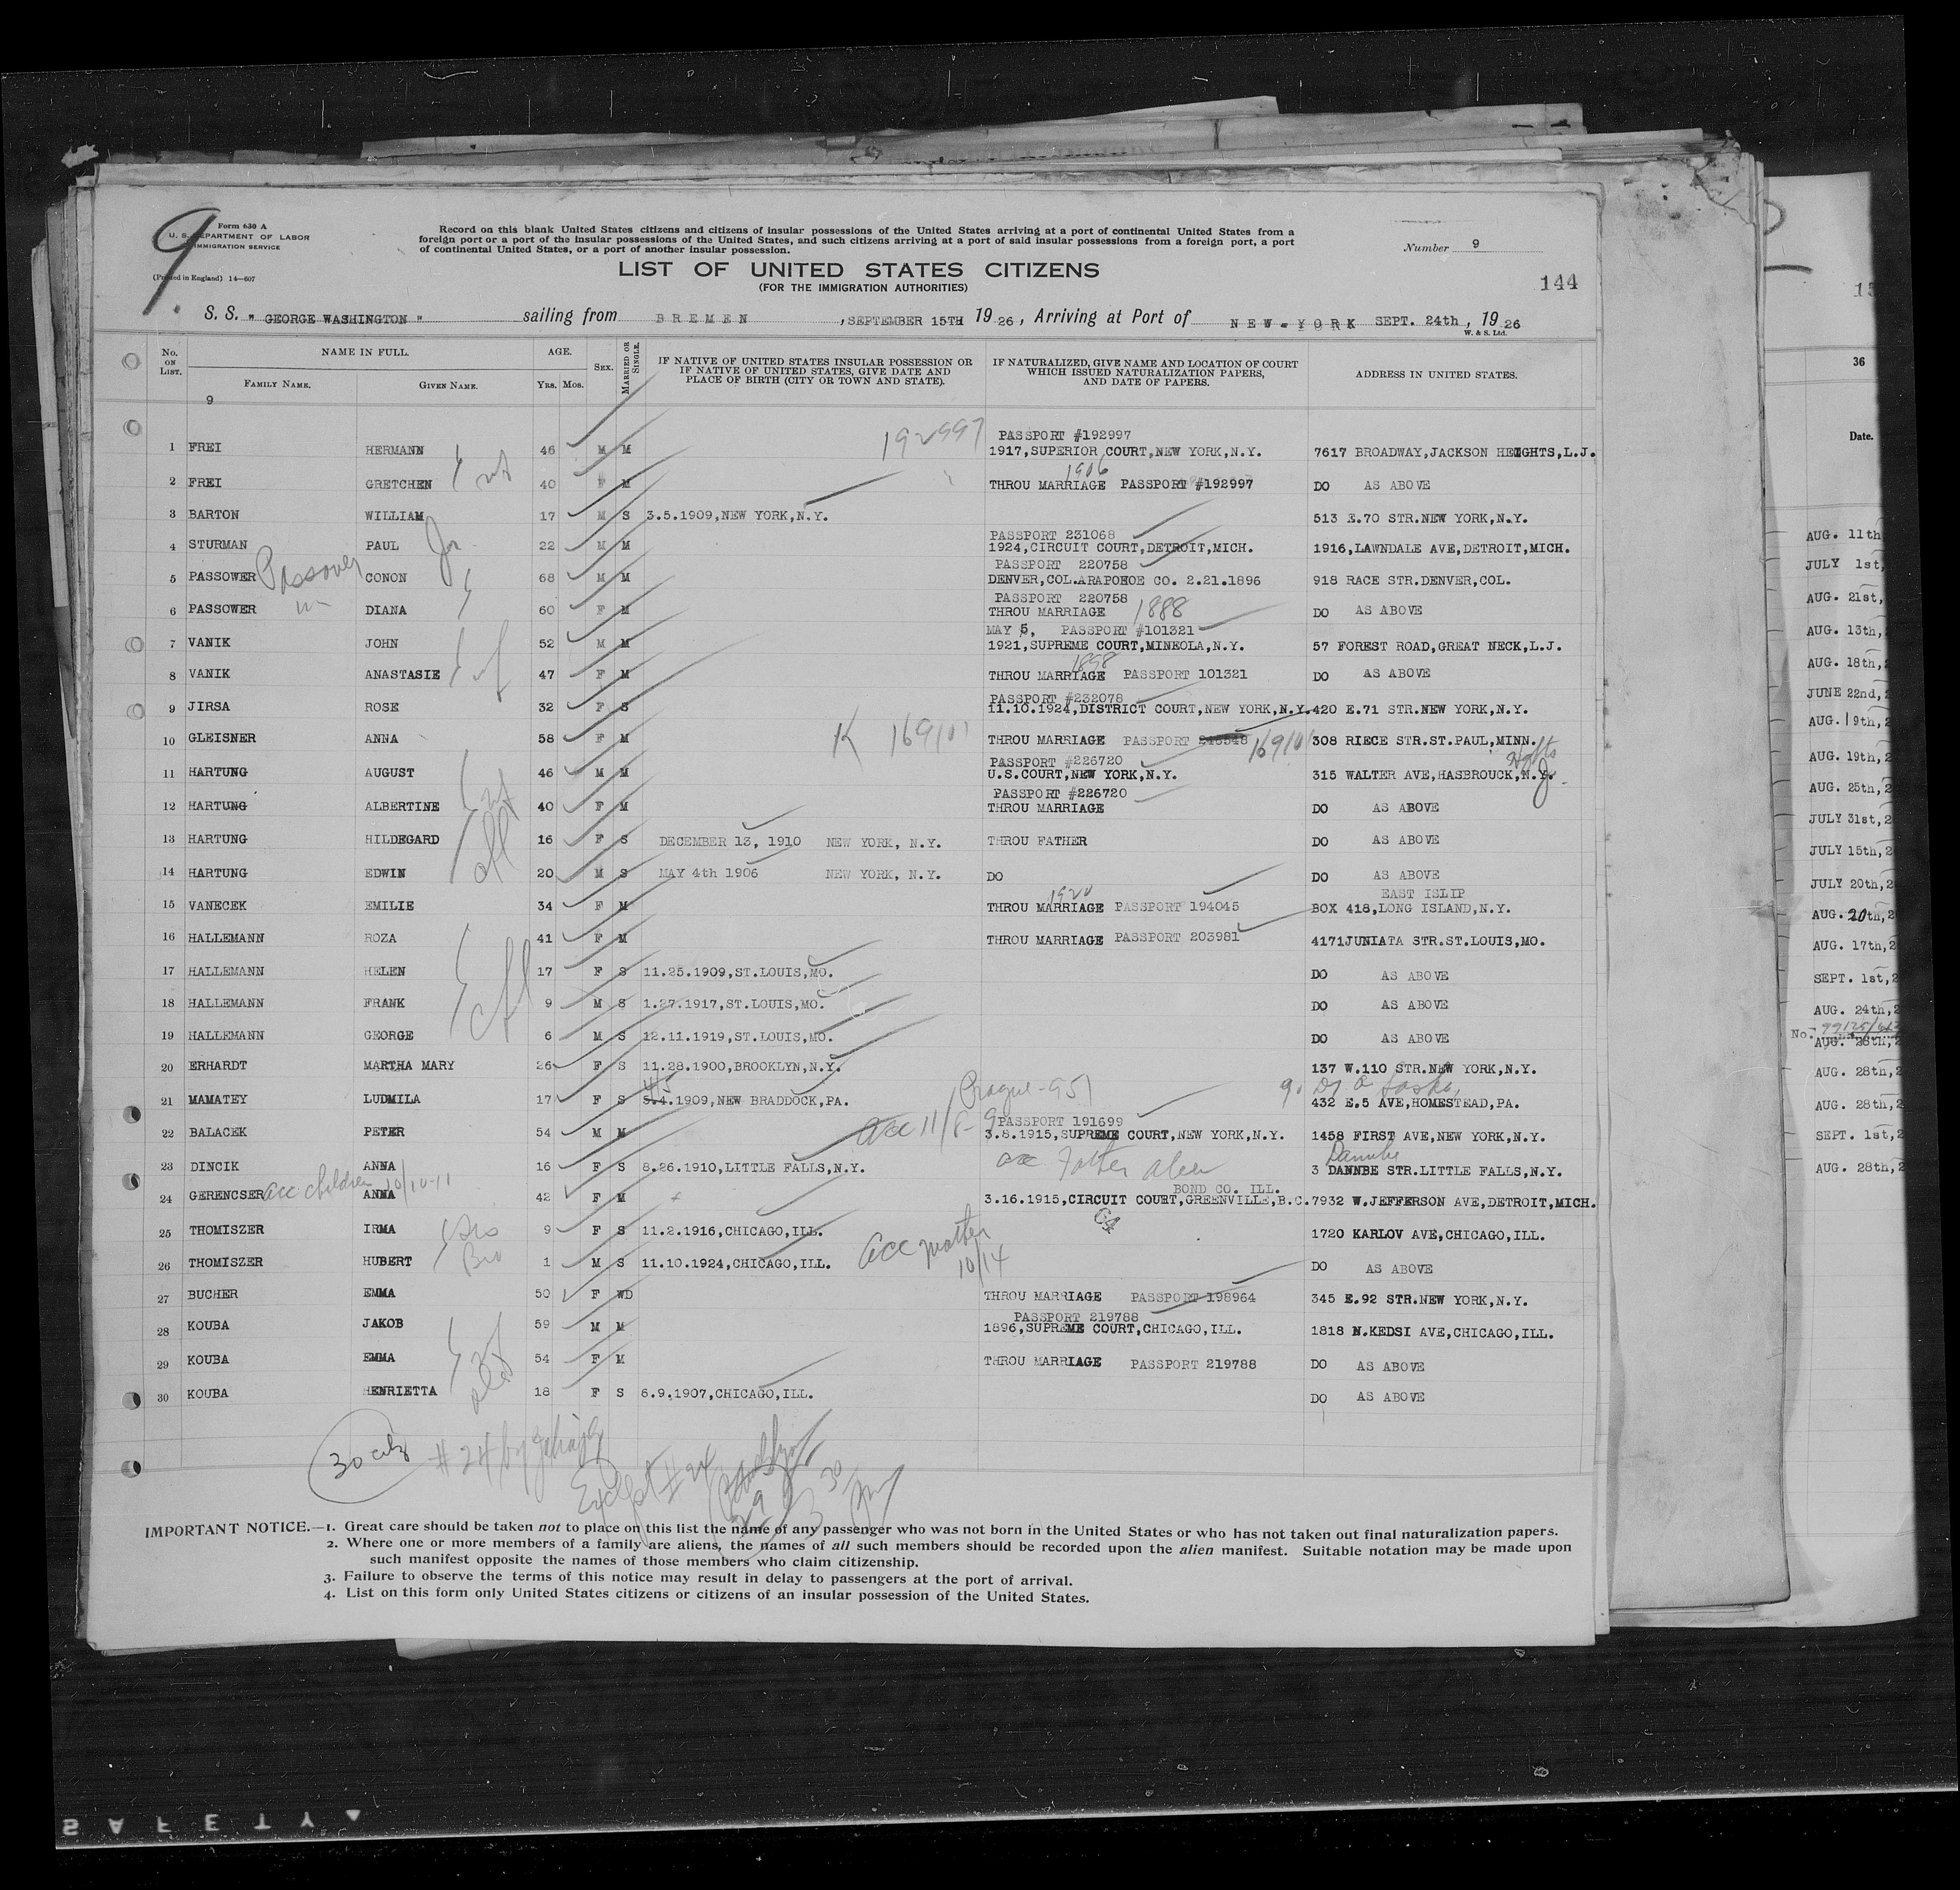 9.
Form 630 A
U. S. DEPARTMENT OF LABOR
IMMIGRATION SERVICE
(Printed in England) 14—607
Record on this blank United States citizens and citizens of insular possessions of the United States arriving at a port of continental United States from a
foreign port or a port of the insular possessions of the United States, and such citizens arriving at a port of said insular possessions from a foreign port, a port
of continental United States, or a port of another insular possession.
Number 9
LIST OF UNITED STATES CITIZENS
(FOR THE IMMIGRATION AUTHORITIES)
144
S. S. " GEORGE WASHINGTON " sailing from BREMEN , SEPTEMBER 15TH 1926 , Arriving at Port of NEW-YORK SEPT. 24th , 1926
W. & S. Ltd.
No. ON LIST. NAME IN FULL. AGE. SEX. MARRIED OR SINGLE. IF NATIVE OF UNITED STATES INSULAR POSSESSION OR IF NATIVE OF UNITED STATES, GIVE DATE AND PLACE OF BIRTH (CITY OR TOWN AND STATE). IF NATURALIZED, GIVE NAME AND LOCATION OF COURT WHICH ISSUED NATURALIZATION PAPERS, AND DATE OF PAPERS. ADDRESS IN UNITED STATES.
FAMILY NAME. GIVEN NAME. Yrs. Mos.
9
192997 PASSPORT #192997
1 FREI HERMANN 46 M M 1917,SUPERIOR COURT,NEW YORK,N.Y. 7617 BROADWAY,JACKSON HEIGHTS,L.J.
1906
2 FREI GRETCHEN 40 F M THROU MARRIAGE PASSPORT #192997 DO AS ABOVE
3 BARTON WILLIAM 17 M S 3.5.1909,NEW YORK,N.Y. 513 E.70 STR.NEW YORK,N.Y.
PASSPORT 231068
4 STURMAN PAUL Jr 22 M M 1924,CIRCUIT COURT,DETROIT,MICH. 1916,LAWNDALE AVE,DETROIT,MICH.
PASSPORT 220758
5 PASSOWER Passover CONON 68 M M DENVER,COL.ARAPOHOE CO. 2.21.1896 918 RACE STR.DENVER,COL.
PASSPORT 220758
6 PASSOWER DIANA 60 F M THROU MARRIAGE 1888 DO AS ABOVE
MAY 5, PASSPORT #101321
7 VANIK JOHN 52 M M 1921,SUPREME COURT,MINEOLA,N.Y. 57 FOREST ROAD,GREAT NECK,L.J.
1898
8 VANIK ANASTASIE 47 F M THROU MARRIAGE PASSPORT 101321 DO AS ABOVE
PASSPORT #232078
9 JIRSA ROSE 32 F S 11.10.1924,DISTRICT COURT,NEW YORK,N.Y. 420 E.71 STR.NEW YORK,N.Y.
10 GLEISNER ANNA 58 F M K 169101 THROU MARRIAGE PASSPORT 169101 308 RIECE STR.ST.PAUL,MINN.
PASSPORT #226720 Hgts
11 HARTUNG AUGUST 46 M M U.S.COURT,NEW YORK,N.Y. 315 WALTER AVE,HASBROUCK,N.Y. J.
PASSPORT #226720
12 HARTUNG ALBERTINE 40 F M THROU MARRIAGE DO AS ABOVE
13 HARTUNG HILDEGARD 16 F S DECEMBER 13, 1910 NEW YORK, N.Y. THROU FATHER DO AS ABOVE
14 HARTUNG EDWIN 20 M S MAY 4th 1906 NEW YORK, N.Y. DO DO AS ABOVE
1920 EAST ISLIP
15 VANECEK EMILIE 34 F M THROU MARRIAGE PASSPORT 194045 BOX 418,LONG ISLAND,N.Y.
16 HALLEMANN ROZA 41 F M THROU MARRIAGE PASSPORT 203981 4171JUNIATA STR.ST.LOUIS,MO.
17 HALLEMANN HELEN 17 F S 11.25.1909,ST.LOUIS,MO. DO AS ABOVE
18 HALLEMANN FRANK 9 M S 1.27.1917,ST.LOUIS,MO. DO AS ABOVE
19 HALLEMANN GEORGE 6 M S 12.11.1919,ST.LOUIS,MO. DO AS ABOVE
20 ERHARDT MARTHA MARY 26 F S 11.28.1900,BROOKLYN,N.Y. 137 W.110 STR.NEW YORK,N.Y.
Prague-95
21 MAMATEY LUDMILA 17 F S 5.4.1909,NEW BRADDOCK,PA. 432 E.5 AVE,HOMESTEAD,PA.
acc 11/8-9 PASSPORT 191699
22 BALACEK PETER 54 M M 3.8.1915,SUPREME COURT,NEW YORK,N.Y. 1458 FIRST AVE,NEW YORK,N.Y.
acc Father alien Danube
23 DINCIK ANNA 16 F S 8.26.1910,LITTLE FALLS,N.Y. 3 DANNBE STR.LITTLE FALLS,N.Y.
acc children 10/10-11 BOND CO. ILL.
24 GERENCSER ANNA 42 F M 3.16.1915,CIRCUIT COURT,GREENVILLE,B.C. 7932 W.JEFFERSON AVE,DETROIT,MICH.
64
25 THOMISZER IRMA Sis 9 F S 11.2.1916,CHICAGO,ILL. 1720 KARLOV AVE,CHICAGO,ILL.
acc mother 10/14
26 THOMISZER HUBERT Bro 1 M S 11.10.1924,CHICAGO,ILL. DO AS ABOVE
27 BUCHER EMMA 50 F WD THROU MARRIAGE PASSPORT 198964 345 E.92 STR.NEW YORK,N.Y.
PASSPORT 219788
28 KOUBA JAKOB 59 M M 1896,SUPREME COURT,CHICAGO,ILL. 1818 N.KEDSI AVE,CHICAGO,ILL.
29 KOUBA EMMA 54 F M THROU MARRIAGE PASSPORT 219788 DO AS ABOVE
30 KOUBA HENRIETTA 18 F S 6.9.1907,CHICAGO,ILL. DO AS ABOVE
30 #24 by
Except #24
29 30
IMPORTANT NOTICE.—1. Great care should be taken not to place on this list the name of any passenger who was not born in the United States or who has not taken out final naturalization papers.
2. Where one or more members of a family are aliens, the names of all such members should be recorded upon the alien manifest. Suitable notation may be made upon
such manifest opposite the names of those members who claim citizenship.
3. Failure to observe the terms of this notice may result in delay to passengers at the port of arrival.
4. List on this form only United States citizens or citizens of an insular possession of the United States.
36
Date.
AUG. 11th
JULY 1st,
AUG. 21st,
AUG. 13th,
AUG. 18th,
JUNE 22nd,
AUG. 19th,
AUG. 19th,
AUG. 25th,
JULY 31st,
JULY 15th,
JULY 20th,
AUG. 20th,
AUG. 17th,
SEPT. 1st,
AUG. 24th,
No.
AUG. 28th,
AUG. 28th,
AUG. 28th,
SEPT. 1st,
AUG. 28th,
SAFETY